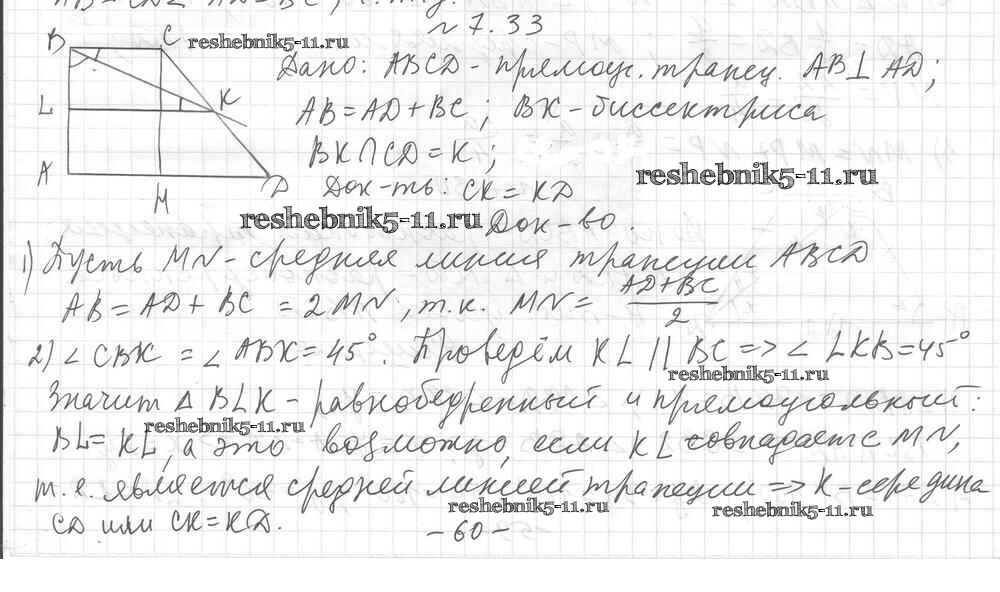 № 7.33
B C reshebnik5-11.ru
Дано: ABCD - прямоуг. трапец. AB⊥AD;
L K
AB = AD + BC; BK - биссектриса
BK∩CD = K;
A M D
Док-ть: CK = KD
reshebnik5-11.ru
reshebnik5-11.ru
Док-во.
1) Пусть MN - средняя линия трапеции ABCD
AB = AD + BC = 2MN, т.к. MN = (AD+BC)/2
2) ∠CBK = ∠ABK = 45°. Проведём KL || BC => ∠LKB = 45°
reshebnik5-11.ru
Значит △BLK - равнобедренный и прямоугольный:
reshebnik5-11.ru
BL = KL, а это возможно, если KL совпадает с MN,
т.е. является средней линией трапеции => K - середина
reshebnik5-11.ru reshebnik5-11.ru
CD или CK = KD.
- 60 -